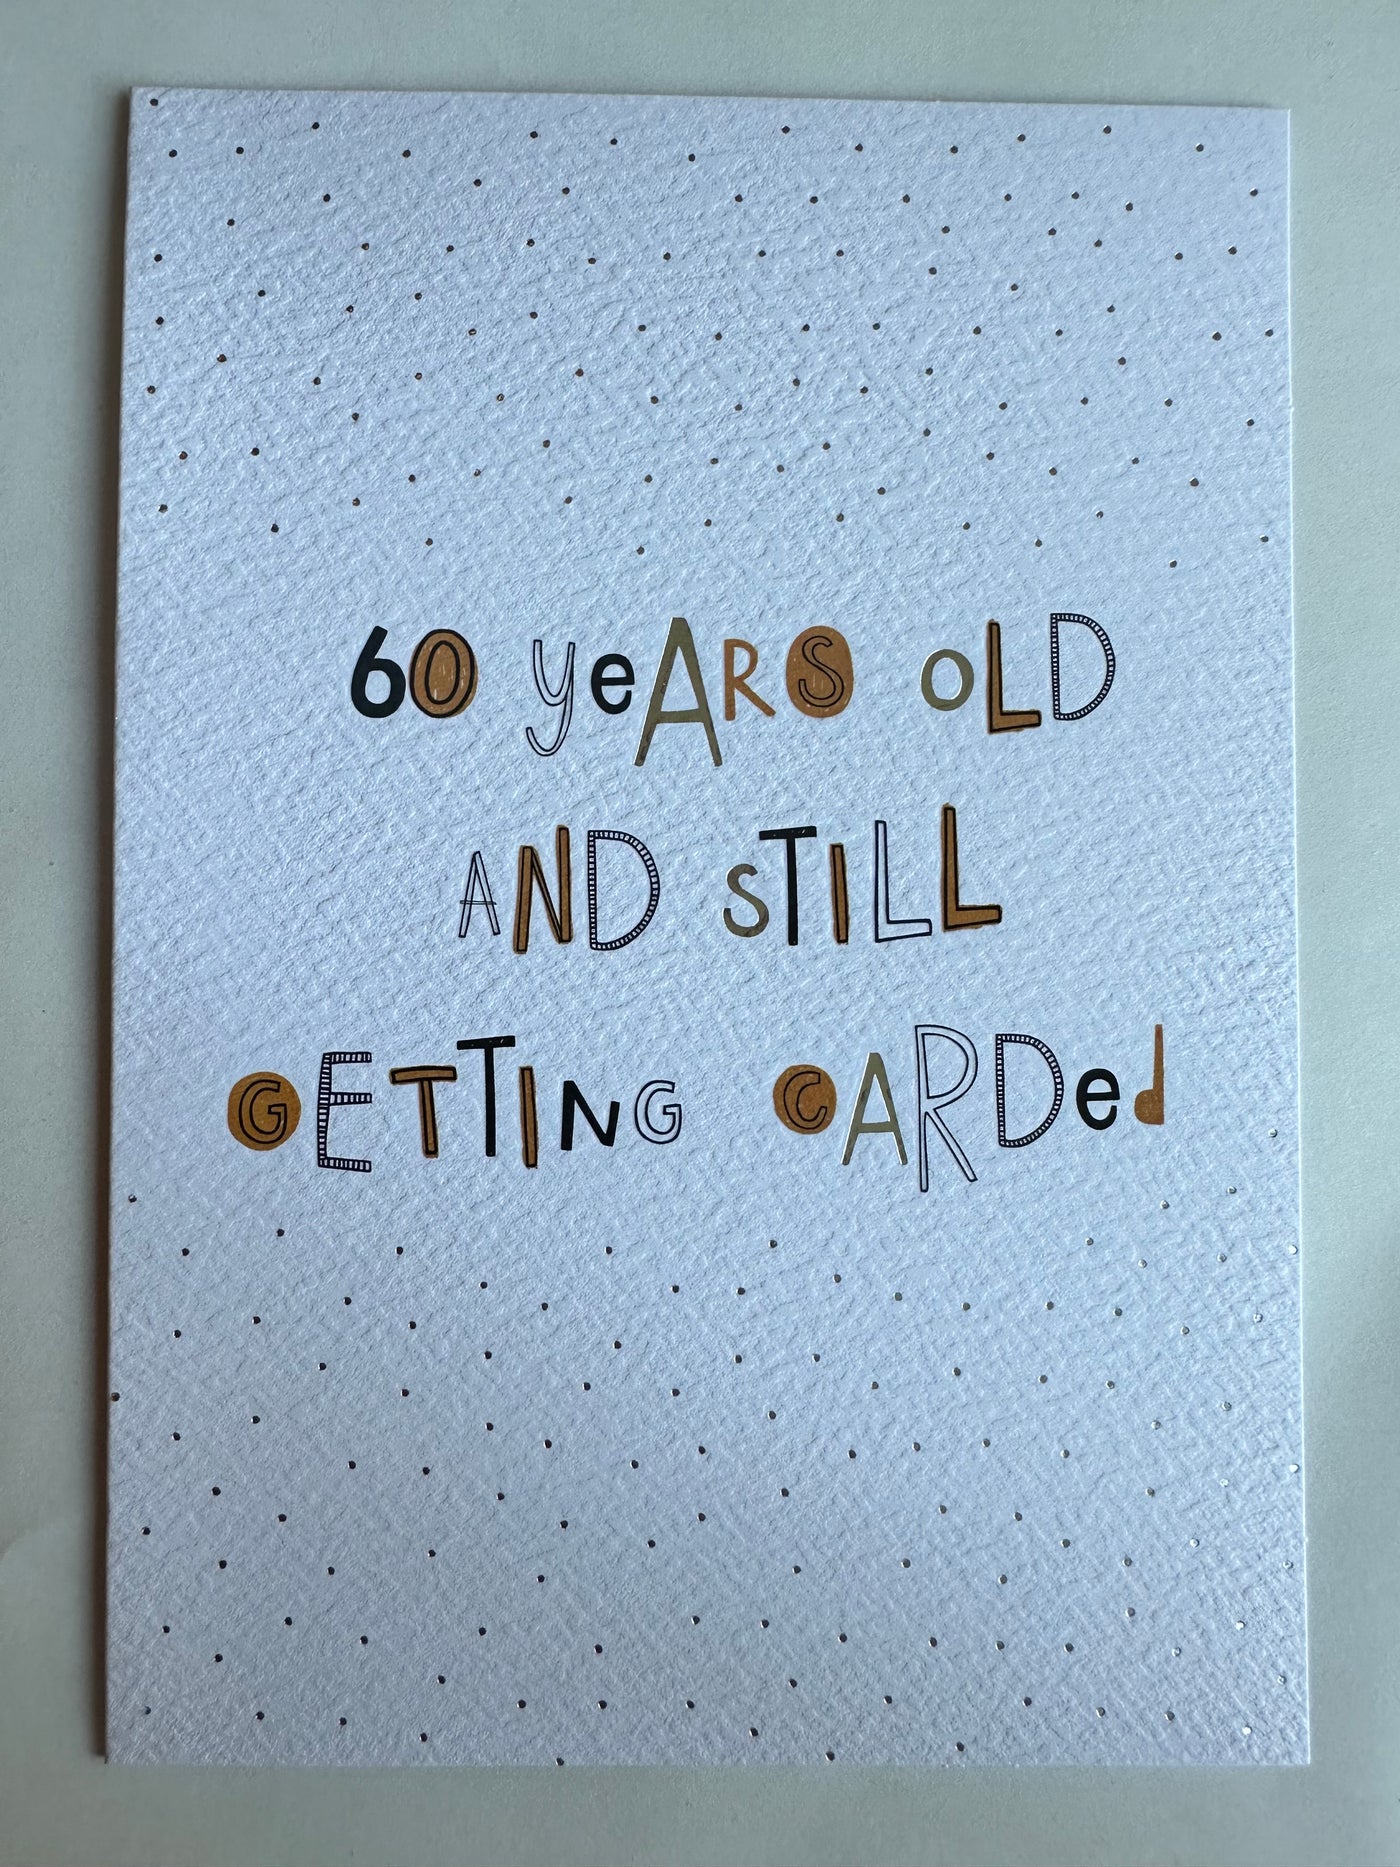 60 yeARS oLD
AND sTiLL
GETTING CARDed